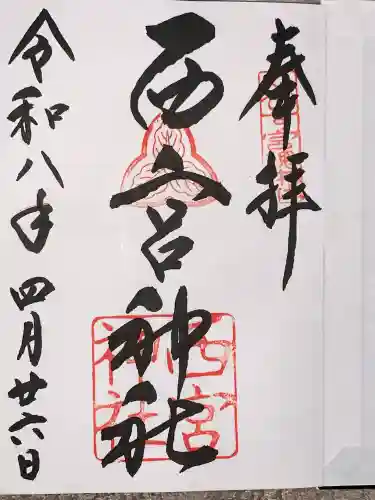 奉拝
西宮神社
西宮神社
令和八年 四月廿六日